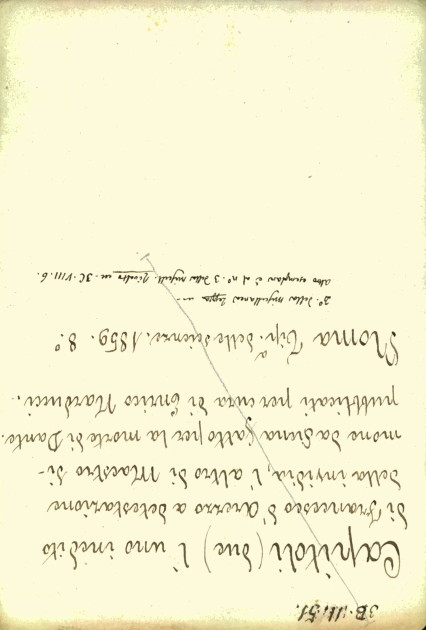 3B.VII.51.
Capitoli (due) l'uno inedito
di Francesco d'Arezzo a detestazione
della invidia, l'altro di Maestro Si-
mone da Siena fatto per la morte di Dante.
pubblicati per cura di Enrico Narducci.
Roma Tipa. delle scienze. 1859. 8.o
2o. della miscellanea legata in
altro esemplare è al no. 3 della miscell. in 3C.VIII.6.